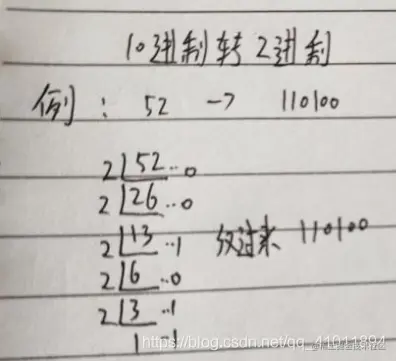 10进制转2进制
例: 52 → 110100
2 52 ··0
2 26 ··0
2 13 ··1 反过来 110100
2 6 ··0
2 3 ··1
1 ··1
https://blog.csdn.net/qq_41011894